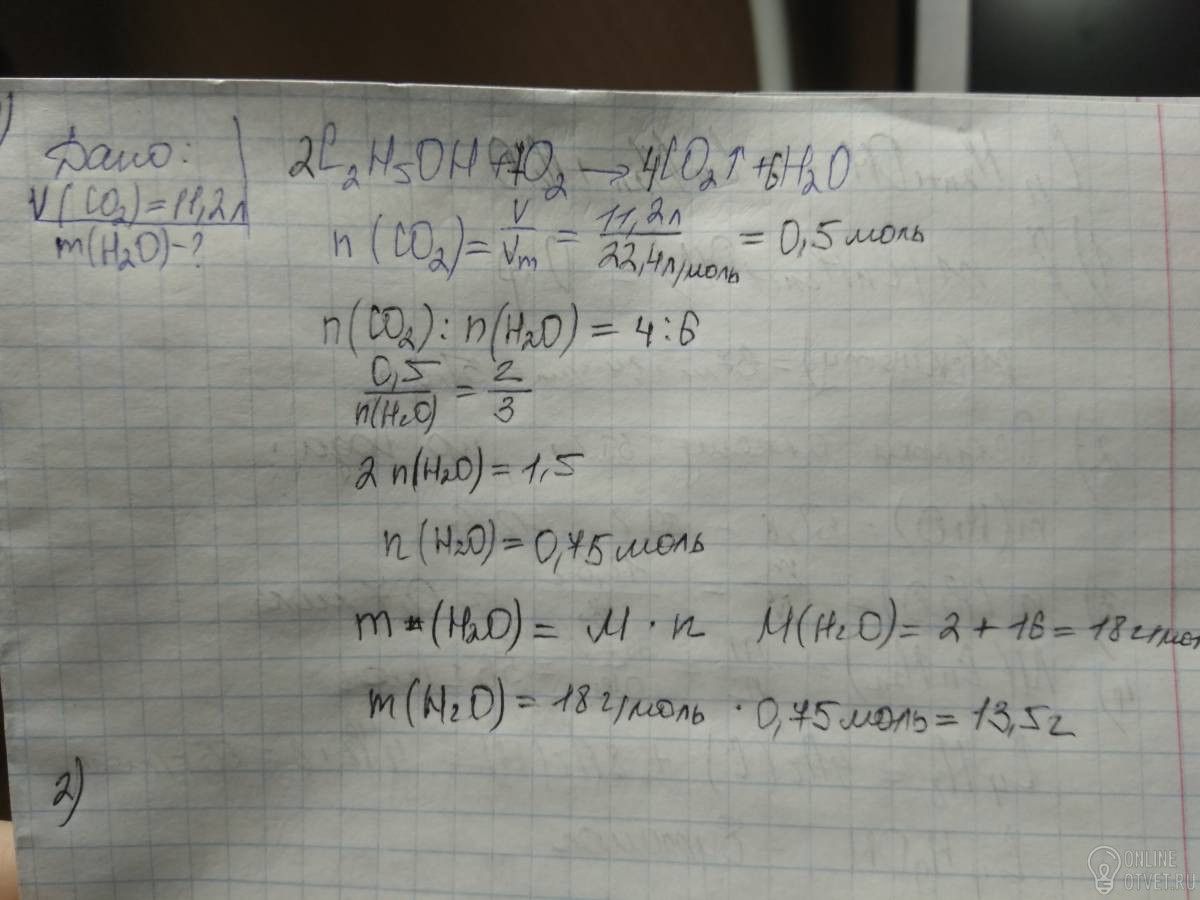 Дано:
V(CO₂)=11,2л
m(H₂O)-?
2C₂H₅OH+7O₂→4CO₂↑+6H₂O
n(CO₂)=V/Vm=11,2л/22,4л/моль=0,5моль
n(CO₂):n(H₂O)=4:6
0,5/n(H₂O)=2/3
2n(H₂O)=1,5
n(H₂O)=0,75моль
m(H₂O)=M·n M(H₂O)=2+16=18г/мол
m(H₂O)=18г/моль·0,75моль=13,5г
2)
ONLINE
OTVET.RU